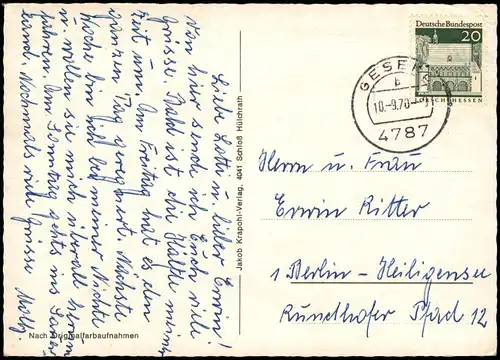 Liebe Lotti u. lieber Erwin!
Von hier sende ich Euch viele
Grüsse. Bald ist die Hälfte meiner
Zeit um. Am Freitag hat es den
ganzen Tag geregnet. Nächste
Woche bin ich bei meiner Nichte
u. wollen sie mich überall herum
fahren. Am Sonntag gehts ins Sauer
land. Nochmals viele Grüsse
Nach Originalfarbaufnahmen
Jakob Krapohl-Verlag, 4041 Schloß Hülchrath
Deutsche Bundespost
20
LORSCH/HESSEN
GESEKE
b
10.-9.70
4787
Herrn u. Frau
Erwin Ritter
1 Berlin-Heiligensee
Rundhofer Pfad 12